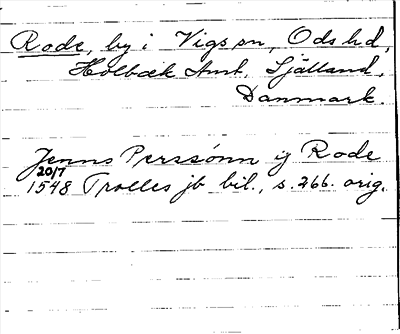 Rode, by i Vigs sn, Ods hd,
Holbæk Amt, Sjælland,
Danmark.
Jenns Perssönn ij Rode
20/7
1548 Trolles jb bil., s. 266. orig.